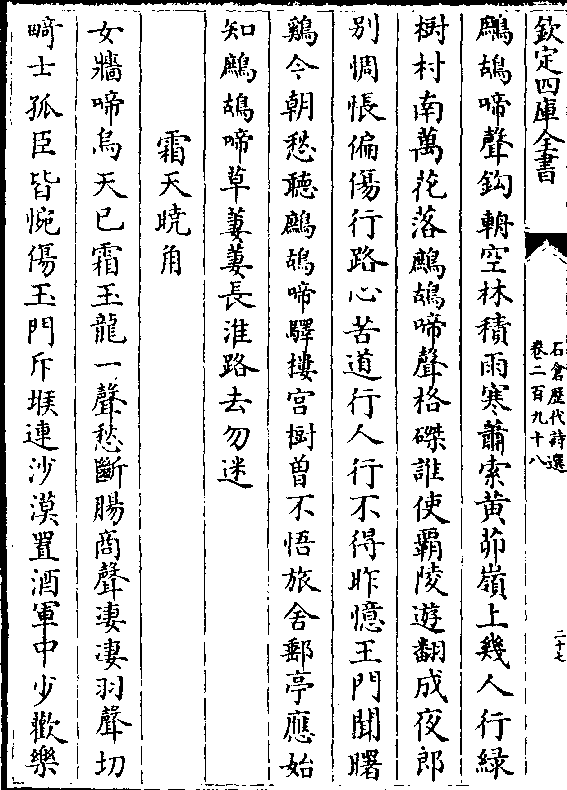 欽定四庫全書
石倉歷代詩選
卷二百九十八
二十七
鷓鴣啼聲鈎輈空林積雨寒蕭索黄茆嶺上幾人行緑
樹村南萬花落鷓鴣啼聲格磔誰使覇陵遊翻成夜郎
别惆悵偏傷行路心苦道行人行不得昨憶王門聞曙
鷄今朝愁聽鷓鴣啼驛摟宫樹曽不悟旅舍郵亭應始
知鷓鴣啼草萋萋長淮路去勿迷
霜天曉角
女牆啼烏天已霜玉龍一聲愁斷腸商聲凄凄羽聲切
畸士孤臣皆惋傷玉門斥堠連沙漠置酒軍中少歡樂